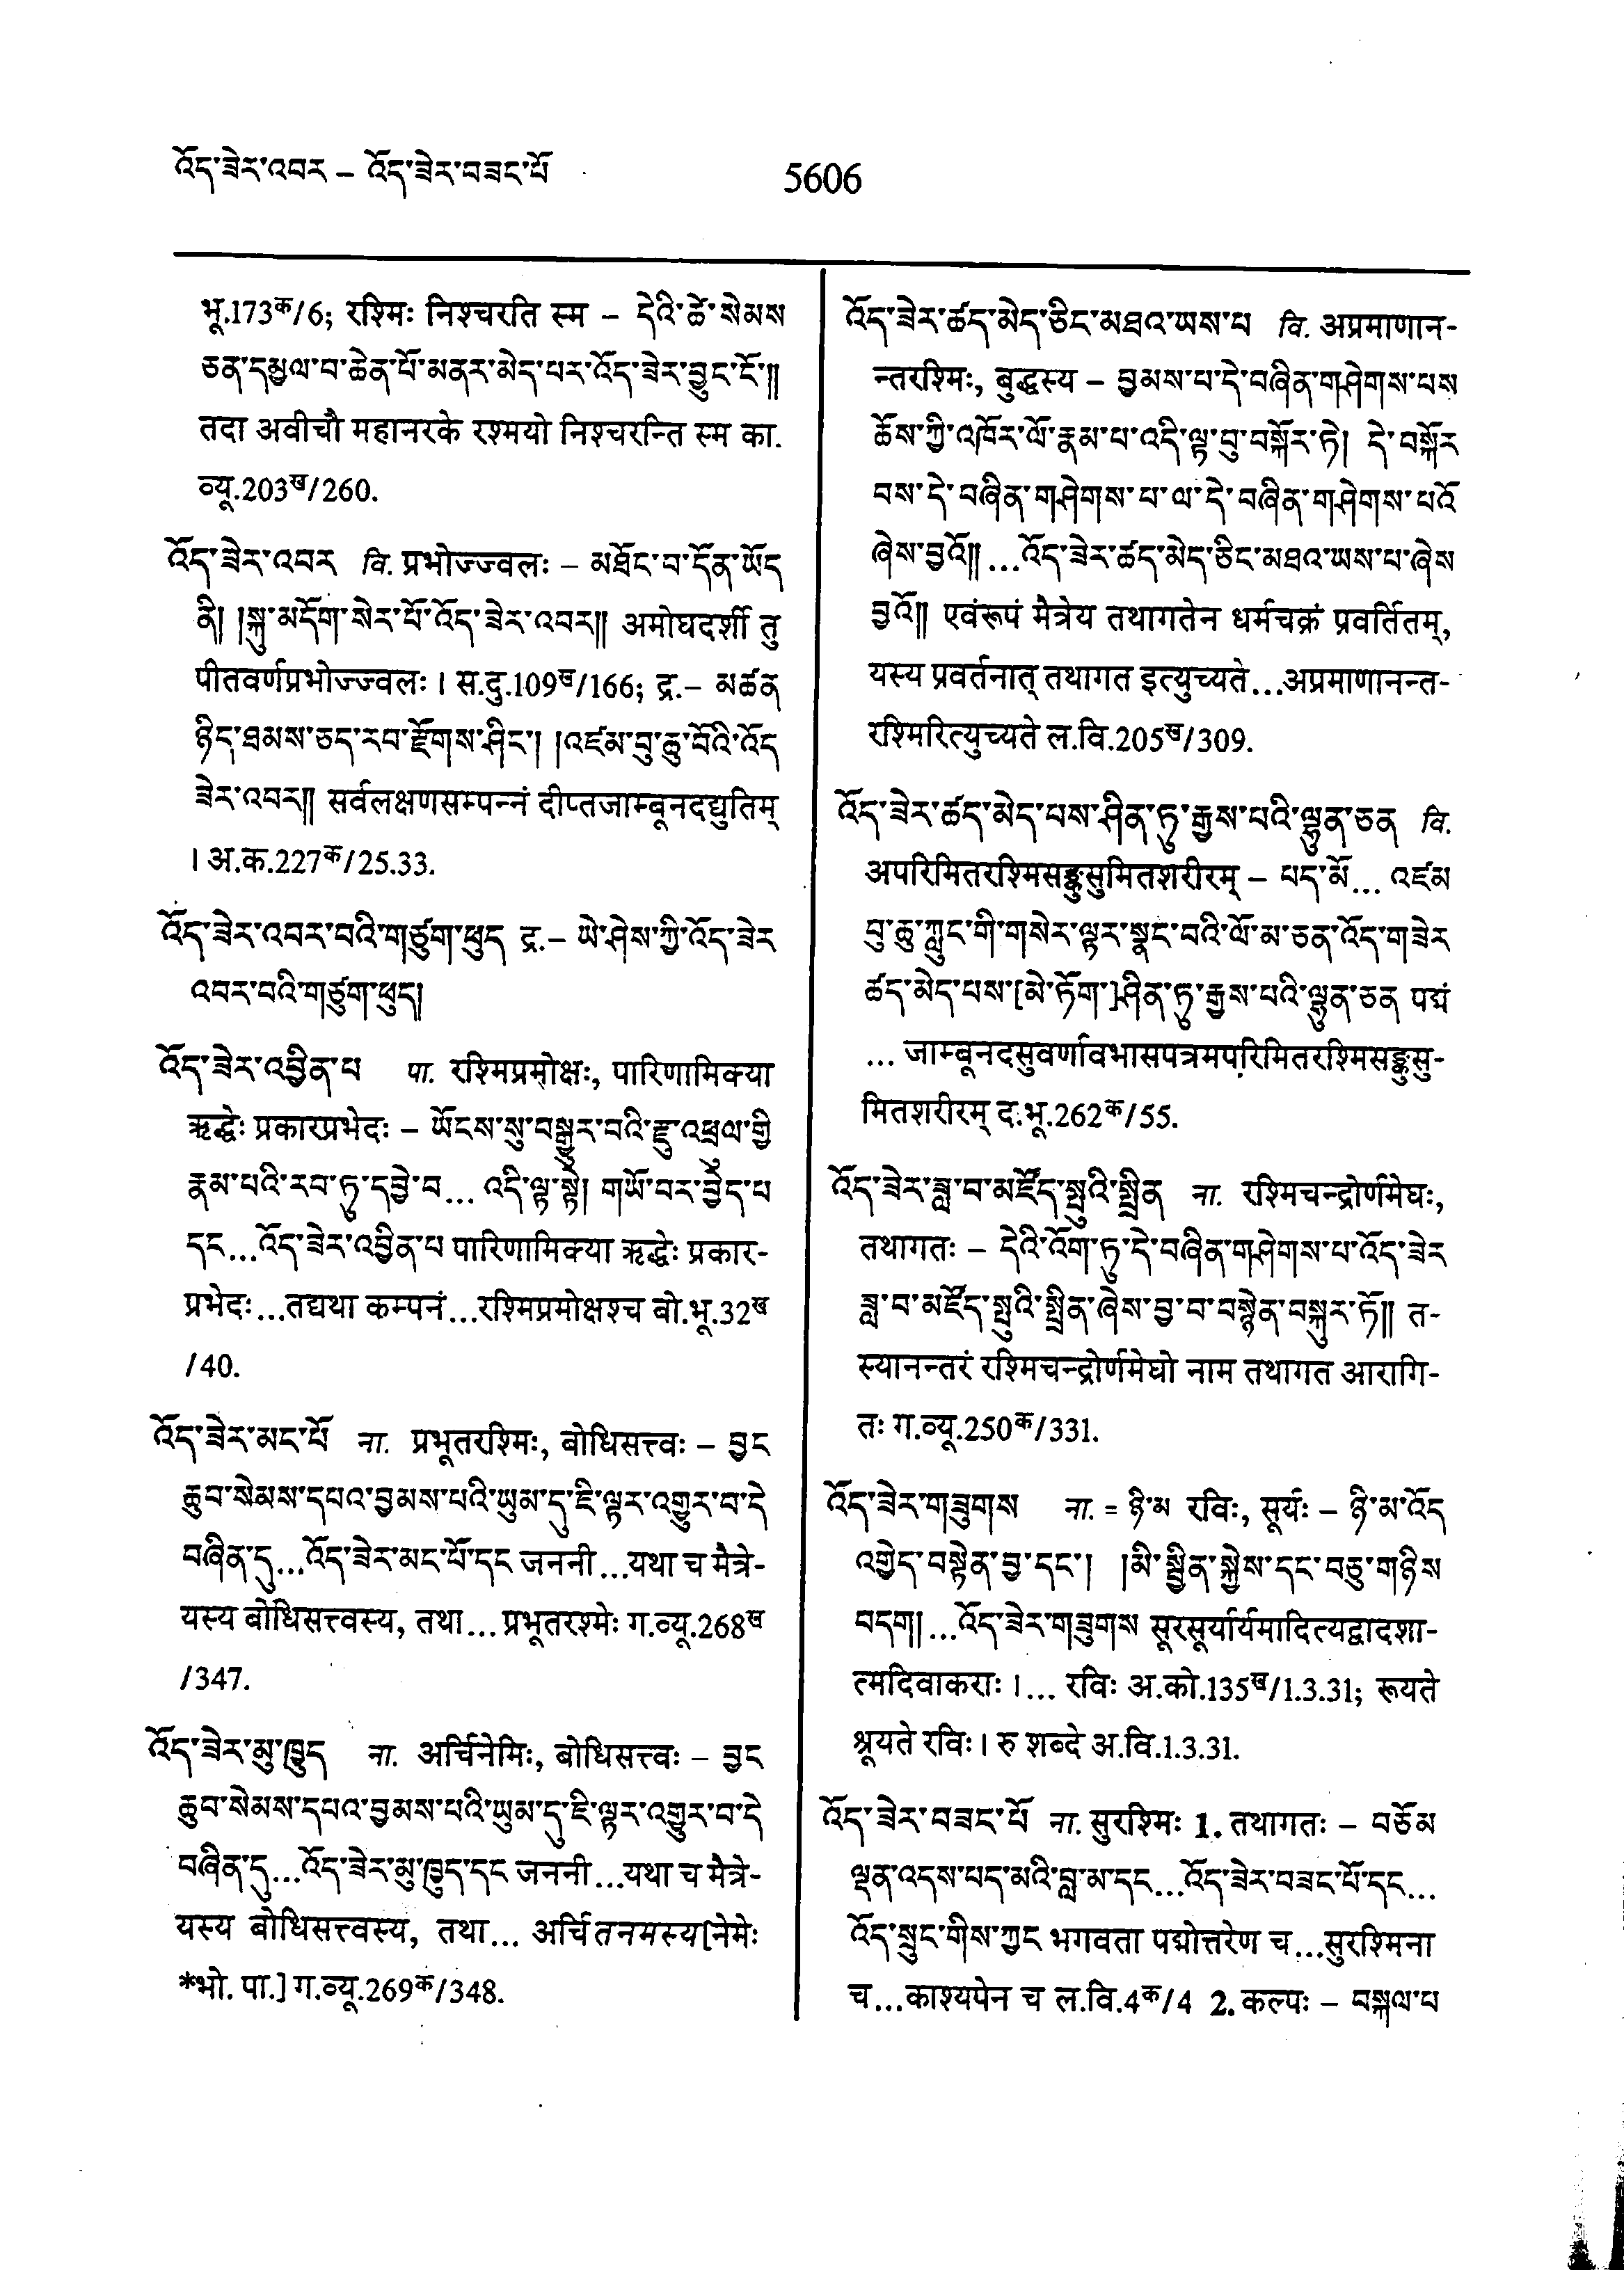 འོད་ཟེར་འབར – འོད་ཟེར་བཟང་པོ
5606
भू.173क/6; रश्मिः निश्चरति स्म – དེའི་ཚེ་སེམས
ཅན་དམྱལ་བ་ཆེན་པོ་མནར་མེད་པར་འོད་ཟེར་བྱུང་ངོ་༎
तदा अवीचौ महानरके रश्मयो निश्चरन्ति स्म का.
व्यू.203ख/260.
འོད་ཟེར་འབར वि. प्रभोज्ज्वलः – མཐོང་བ་དོན་ཡོད
ནི། །སྐུ་མདོག་སེར་པོ་འོད་ཟེར་འབར༎ अमोघदर्शी तु
पीतवर्णप्रभोज्ज्वलः। स.दु.109ख/166; द्र.– མཚན
ཉིད་ཐམས་ཅད་རབ་རྫོགས་ཤིང་། །འཛམ་བུ་ཆུ་བོའི་འོད
ཟེར་འབར༎ सर्वलक्षणसम्पन्नं दीप्तजाम्बूनदद्युतिम्
। अ.क.227क/25.33.
འོད་ཟེར་འབར་བའི་གཙུག་ཕུད द्र.– ཡེ་ཤེས་ཀྱི་འོད་ཟེར
འབར་བའི་གཙུག་ཕུད།
འོད་ཟེར་འབྱིན་པ पा. रश्मिप्रमोक्षः, पारिणामिक्या
ऋद्धेः प्रकारप्रभेदः – ཡོངས་སུ་བསྒྱུར་བའི་རྫུ་འཕྲུལ་གྱི
རྣམ་པའི་རབ་ཏུ་དབྱེ་བ... འདི་ལྟ་སྟེ། གཡོ་བར་བྱེད་པ
དང...འོད་ཟེར་འབྱིན་པ पारिणामिक्या ऋद्धेः प्रकार-
प्रभेदः...तद्यथा कम्पनं...रश्मिप्रमोक्षश्च बो.भू.32ख
/40.
འོད་ཟེར་མང་པོ ना. प्रभूतरश्मिः, बोधिसत्त्वः – བྱང
ཆུབ་སེམས་དཔའ་བྱམས་པའི་ཡུམ་དུ་ཇི་ལྟར་འགྱུར་བ་དེ
བཞིན་དུ...འོད་ཟེར་མང་པོ་དང जननी...यथा च मैत्रे-
यस्य बोधिसत्त्वस्य, तथा... प्रभूतरश्मेः ग.व्यू.268ख
/347.
འོད་ཟེར་མུ་ཁྱུད ना. अर्चिनेमिः, बोधिसत्त्वः – བྱང
ཆུབ་སེམས་དཔའ་བྱམས་པའི་ཡུམ་དུ་ཇི་ལྟར་འགྱུར་བ་དེ
བཞིན་དུ...འོད་ཟེར་མུ་ཁྱུད་དང जननी...यथा च मैत्रे-
यस्य बोधिसत्त्वस्य, तथा... अर्चितनमस्य[नेमेः
*भो. पा.] ग.व्यू.269क/348.
འོད་ཟེར་ཚད་མེད་ཅིང་མཐའ་ཡས་པ वि. अप्रमाणान-
न्तरश्मिः, बुद्धस्य – བྱམས་པ་དེ་བཞིན་གཤེགས་པས
ཆོས་ཀྱི་འཁོར་ལོ་རྣམ་པ་འདི་ལྟ་བུ་བསྐོར་ཏེ། དེ་བསྐོར
བས་དེ་བཞིན་གཤེགས་པ་ལ་དེ་བཞིན་གཤེགས་པའོ
ཞེས་བྱའོ༎...འོད་ཟེར་ཚད་མེད་ཅིང་མཐའ་ཡས་པ་ཞེས
བྱའོ༎ एवंरूपं मैत्रेय तथागतेन धर्मचक्रं प्रवर्तितम्,
यस्य प्रवर्तनात् तथागत इत्युच्यते...अप्रमाणानन्त-
रश्मिरित्युच्यते ल.वि.205ख/309.
འོད་ཟེར་ཚད་མེད་པས་ཤིན་ཏུ་རྒྱས་པའི་ལྷུན་ཅན वि.
अपरिमितरश्मिसङ्कुसुमितशरीरम् – པད་མོ... འཛམ
བུ་ཆུ་ཀླུང་གི་གསེར་ལྟར་སྣང་བའི་ལོ་མ་ཅན་འོད་གཟེར
ཚད་མེད་པས་[མེ་ཏོག་]ཤིན་ཏུ་རྒྱས་པའི་ལྷུན་ཅན पद्मं
... जाम्बूनदसुवर्णावभासपत्रमपरिमितरश्मिसङ्कुसु-
मितशरीरम् द.भू.262क/55.
འོད་ཟེར་ཟླ་བ་མཛོད་སྤུའི་སྤྲིན ना. रश्मिचन्द्रोर्णमेघः,
तथागतः – དེའི་འོག་ཏུ་དེ་བཞིན་གཤེགས་པ་འོད་ཟེར
ཟླ་བ་མཛོད་སྤུའི་སྤྲིན་ཞེས་བྱ་བ་བསྙེན་བསྐུར་ཏོ༎ त-
स्यानन्तरं रश्मिचन्द्रोर्णमेघो नाम तथागत आरागि-
तः ग.व्यू.250क/331.
འོད་ཟེར་གཟུགས ना. = ཉི་མ रविः, सूर्यः – ཉི་མ་འོད
འགྱེད་བསྟེན་བྱ་དང་། །མི་སྦྱིན་སྐྱེས་དང་བཅུ་གཉིས
བདག།...འོད་ཟེར་གཟུགས सूरसूर्यार्यमादित्यद्वादशा-
त्मदिवाकराः।... रविः अ.को.135ख/1.3.31; रूयते
श्रूयते रविः। रु शब्दे अ.वि.1.3.31.
འོད་ཟེར་བཟང་པོ ना. सुरश्मिः 1. तथागतः – བཅོམ
ལྡན་འདས་པད་མའི་བླ་མ་དང...འོད་ཟེར་བཟང་པོ་དང...
འོད་སྲུང་གིས་ཀྱང भगवता पद्मोत्तरेण च...सुरश्मिना
च...काश्यपेन च ल.वि.4क/4 2. कल्पः – བསྐལ་པ